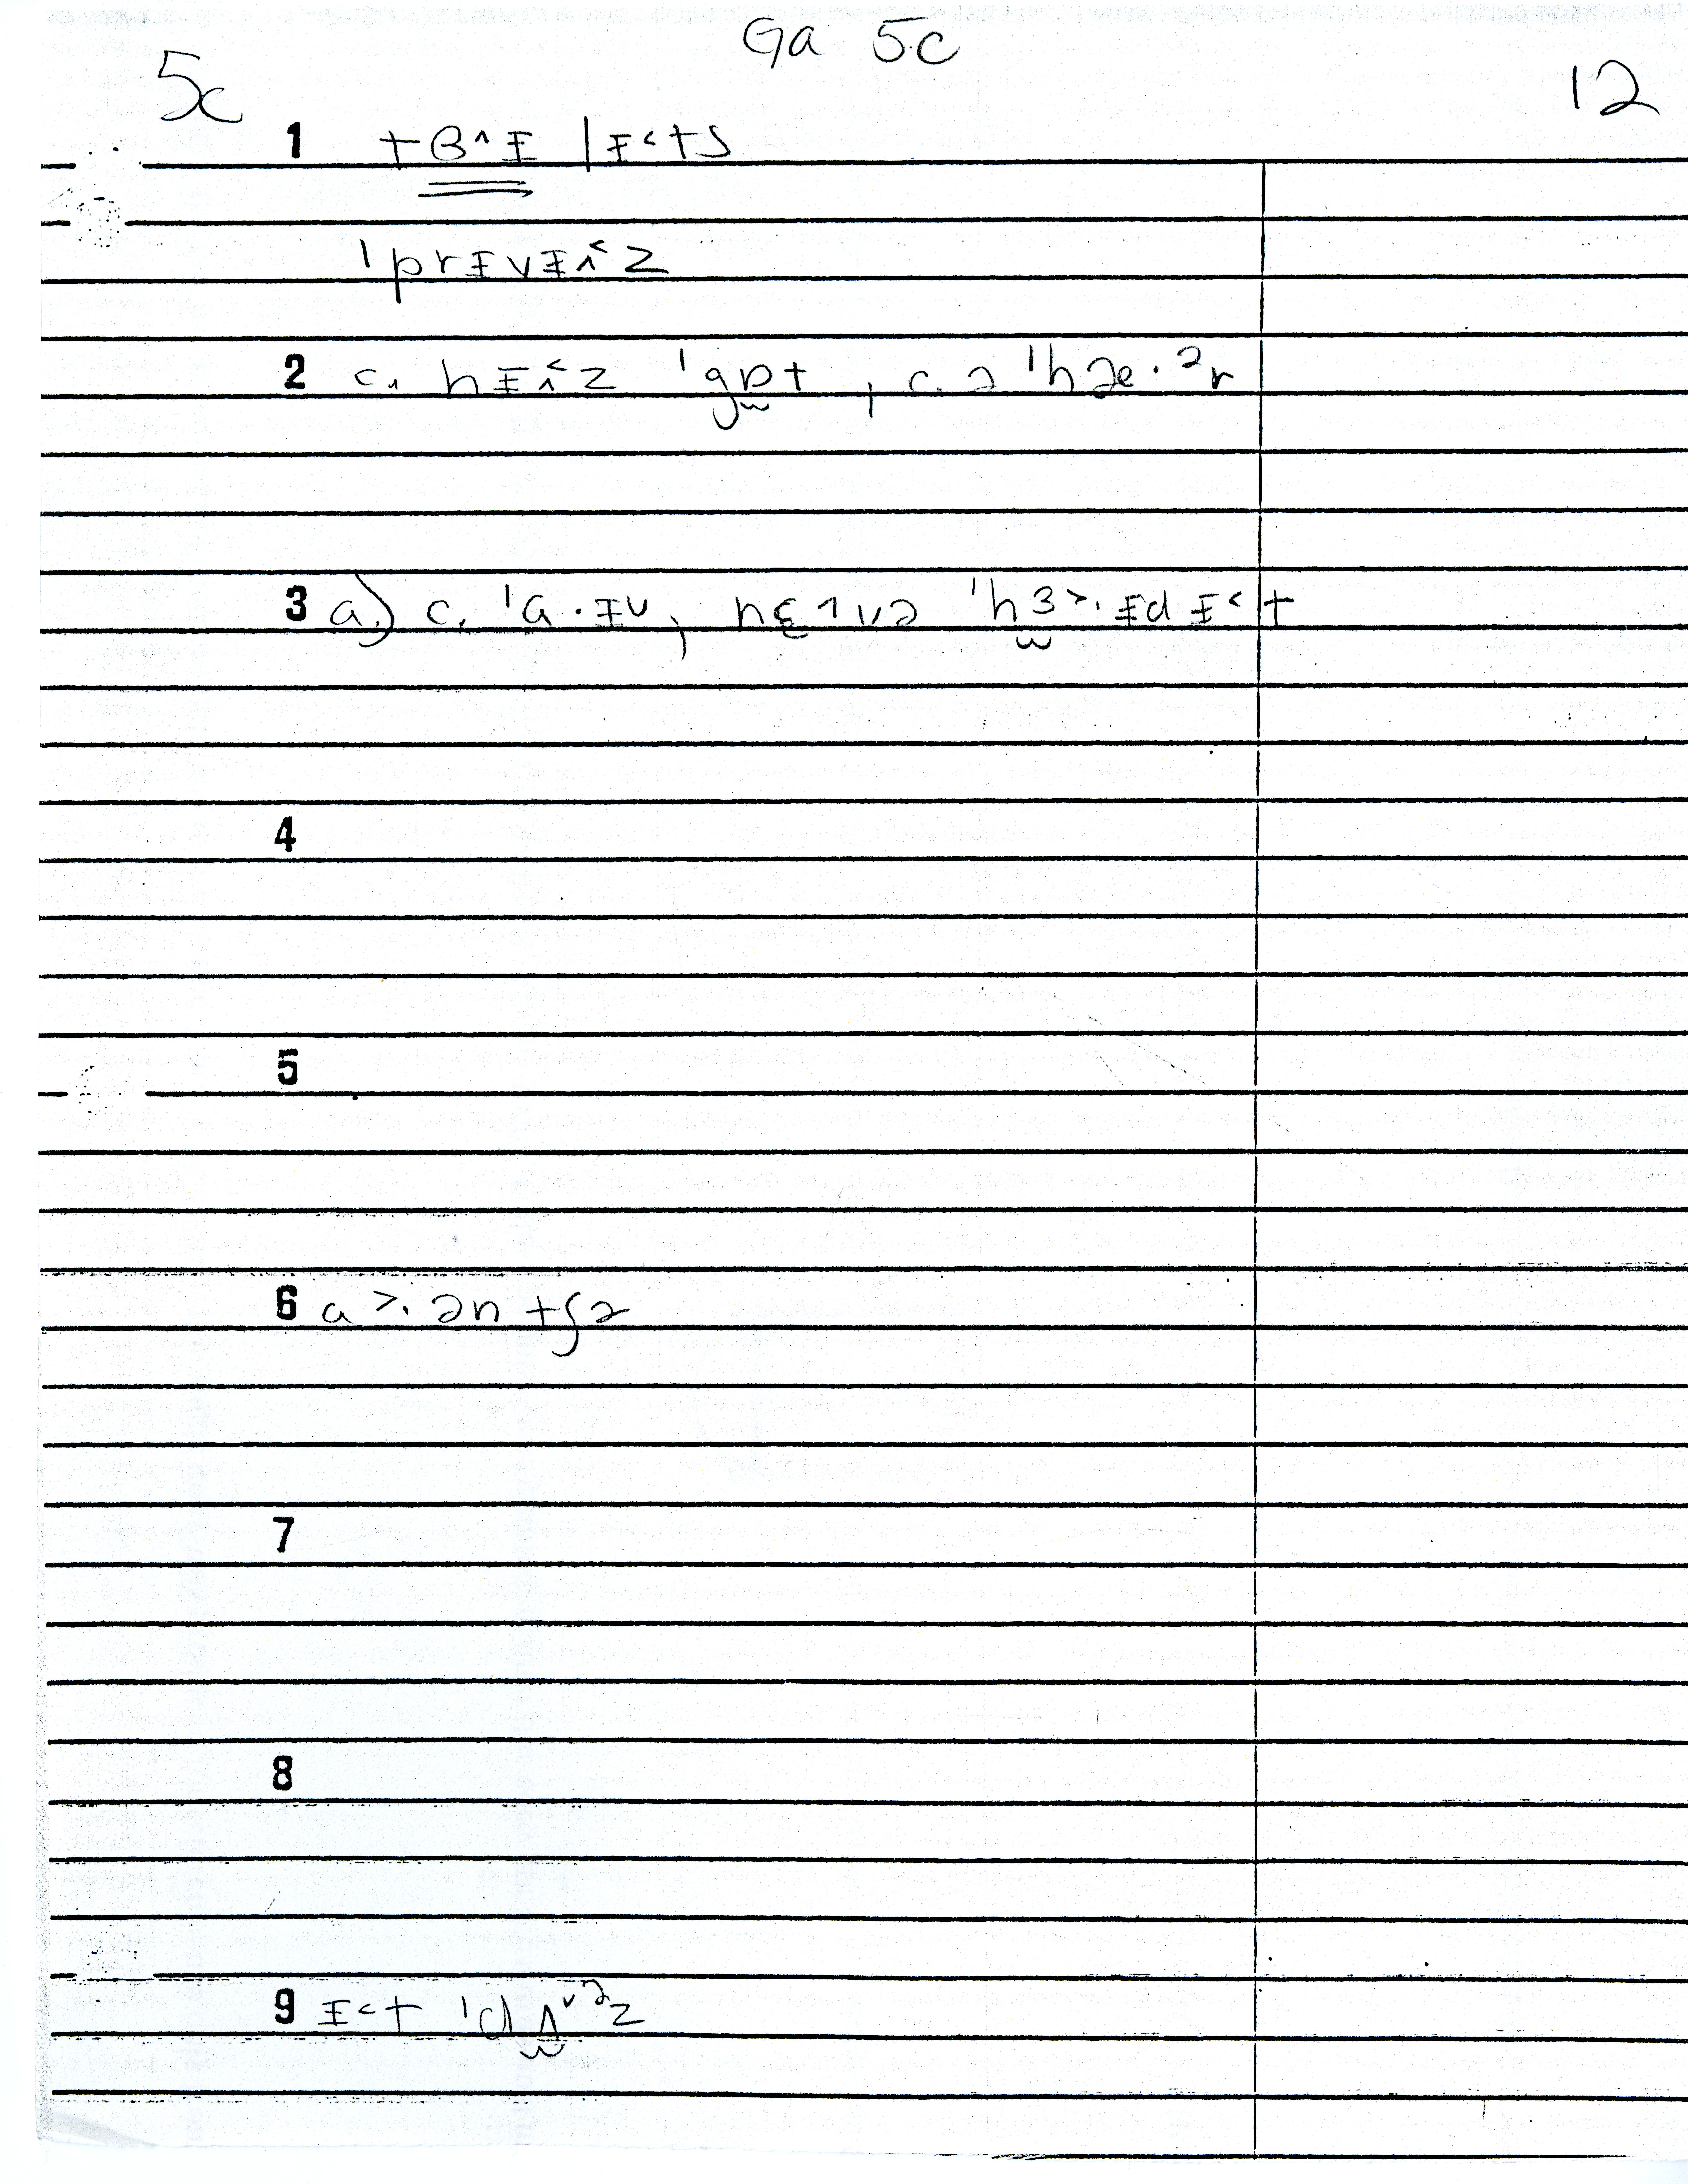 Ga 5c
5c 12
1 tɞ^ɪ |ɪ˂ts
ˈprɪvɪ^˂z
2 c. hɪ^˂z ˈgɒt, c. ə ˈhəe.ᵊr
3 a.) c. ˈɑ.ɪv, nɛ1və ˈhɜ˃.ɪdɪ˂t
4
5
6 a˃. ən tʃə
7
8
9 ɪ˂t ˈdʌ˅ᵊz